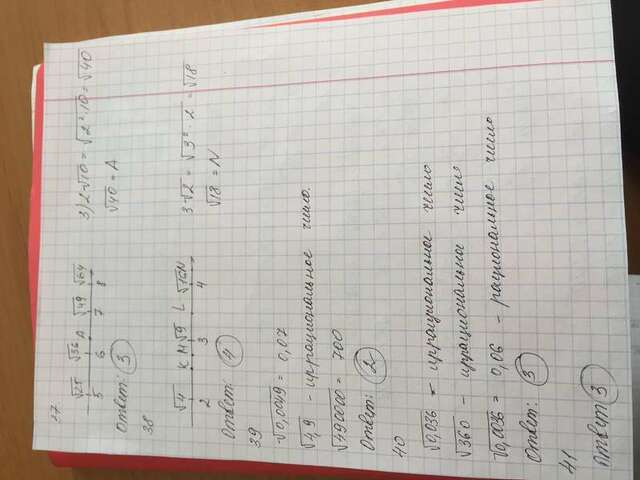 37
√25 √36 A √49 √64
5 6 7 8
3) 2·√10 = √2²·10 = √40
√40 = A
Ответ: 3
38
√4 K M √9 L √16 N
2 3 4
3·√2 = √3²·2 = √18
√18 = N
Ответ: 4
39
√0,0049 = 0,07
√4,9 - иррациональное число.
√490000 = 700
Ответ: 2
40
√0,036 - иррациональное число
√360 - иррациональное число
√0,0036 = 0,06 - рациональное число
Ответ: 3
41
Ответ 3